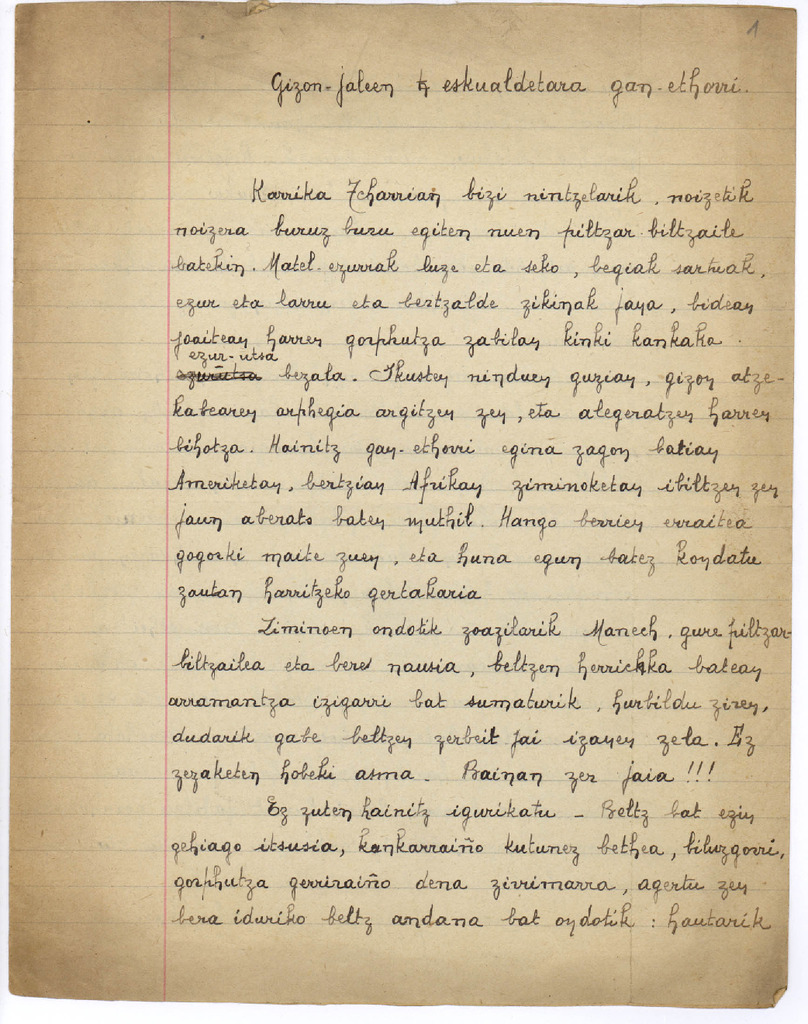 1
Gizon-jaleen eskualdetara gan-ethorri.
Karrika Zcharrian bizi nintzelarik, noizetik
noizera buruz buru egiten nuen piltzar-biltzaile
batekin. Matel-ezurrak luze eta seko, begiak sarthuak,
ezur eta larru eta bertzalde zikinak jana, bidean
joaitean harren gorphutza zabilan kinki kankaka
ezur-utsa
ezurutsa bezala. Ikusten ninduen guzian, gizon atze-
kabearen arphegia argitzen zen, eta alegeratzen harren
bihotza. Hainitz gan-ethorri egina zagon batian
Ameriketan, bertzian Afrikan ziminoketan ibiltzen zen
jaun aberats baten muthil. Hango berrien erraitea
gogorki maite zuen, eta huna egun batez kondatu
zautan harritzeko gertakaria
Ziminoen ondotik zoazilarik Manech, gure piltzar-
biltzailea eta bere nausia, beltzen herrichka batean
arramantza izigarri bat sumaturik, hurbildu ziren,
dudarik gabe beltzen zerbeit jai izanen zela. Ez
zezaketen hobeki asma. Bainan zer jaia !!!
Ez zuten hainitz igurikatu - Beltz bat ezin
gehiago itsusia, kankarraiño kutunez bethea, biluzgorri,
gorphutza gerriraiño dena zirrimarra, agertu zen
bera iduriko beltz andana bat ondotik : hautarik